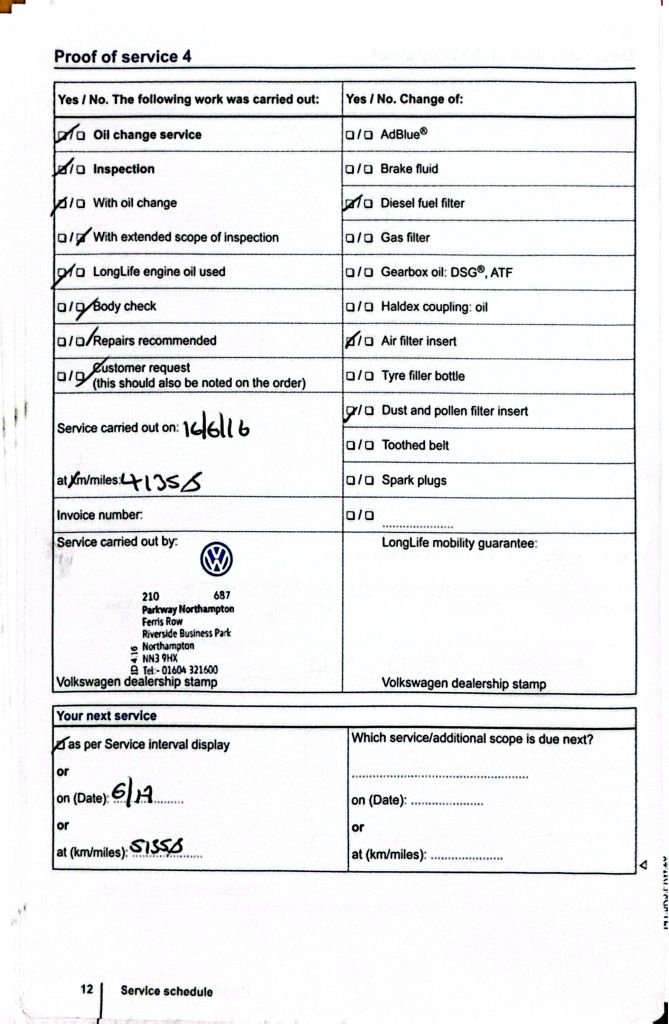 Proof of service 4
Yes / No. The following work was carried out:
☑/☐ Oil change service
☑/☐ Inspection
☑/☐ With oil change
☐/☑ With extended scope of inspection
☑/☐ LongLife engine oil used
☐/☑ Body check
☐/☑ Repairs recommended
☐/☑ Customer request
(this should also be noted on the order)
Service carried out on: 16/6/16
at km/miles:
Invoice number:
Service carried out by:
210 687
Parkway Northampton
Ferris Row
Riverside Business Park
Northampton
NN3 9HX
Tel:- 01604 321600
ID 4.16
Volkswagen dealership stamp
Yes / No. Change of:
☐/☐ AdBlue®
☐/☐ Brake fluid
☑/☐ Diesel fuel filter
☐/☐ Gas filter
☐/☐ Gearbox oil: DSG®, ATF
☐/☐ Haldex coupling: oil
☑/☐ Air filter insert
☐/☐ Tyre filler bottle
☑/☐ Dust and pollen filter insert
☐/☐ Toothed belt
☐/☐ Spark plugs
☐/☐ ....................
LongLife mobility guarantee:
Volkswagen dealership stamp
Your next service
☑ as per Service interval display
or
on (Date): 6/17
or
at (km/miles):
Which service/additional scope is due next?
..................................................
on (Date): ....................
or
at (km/miles): ....................
12 Service schedule